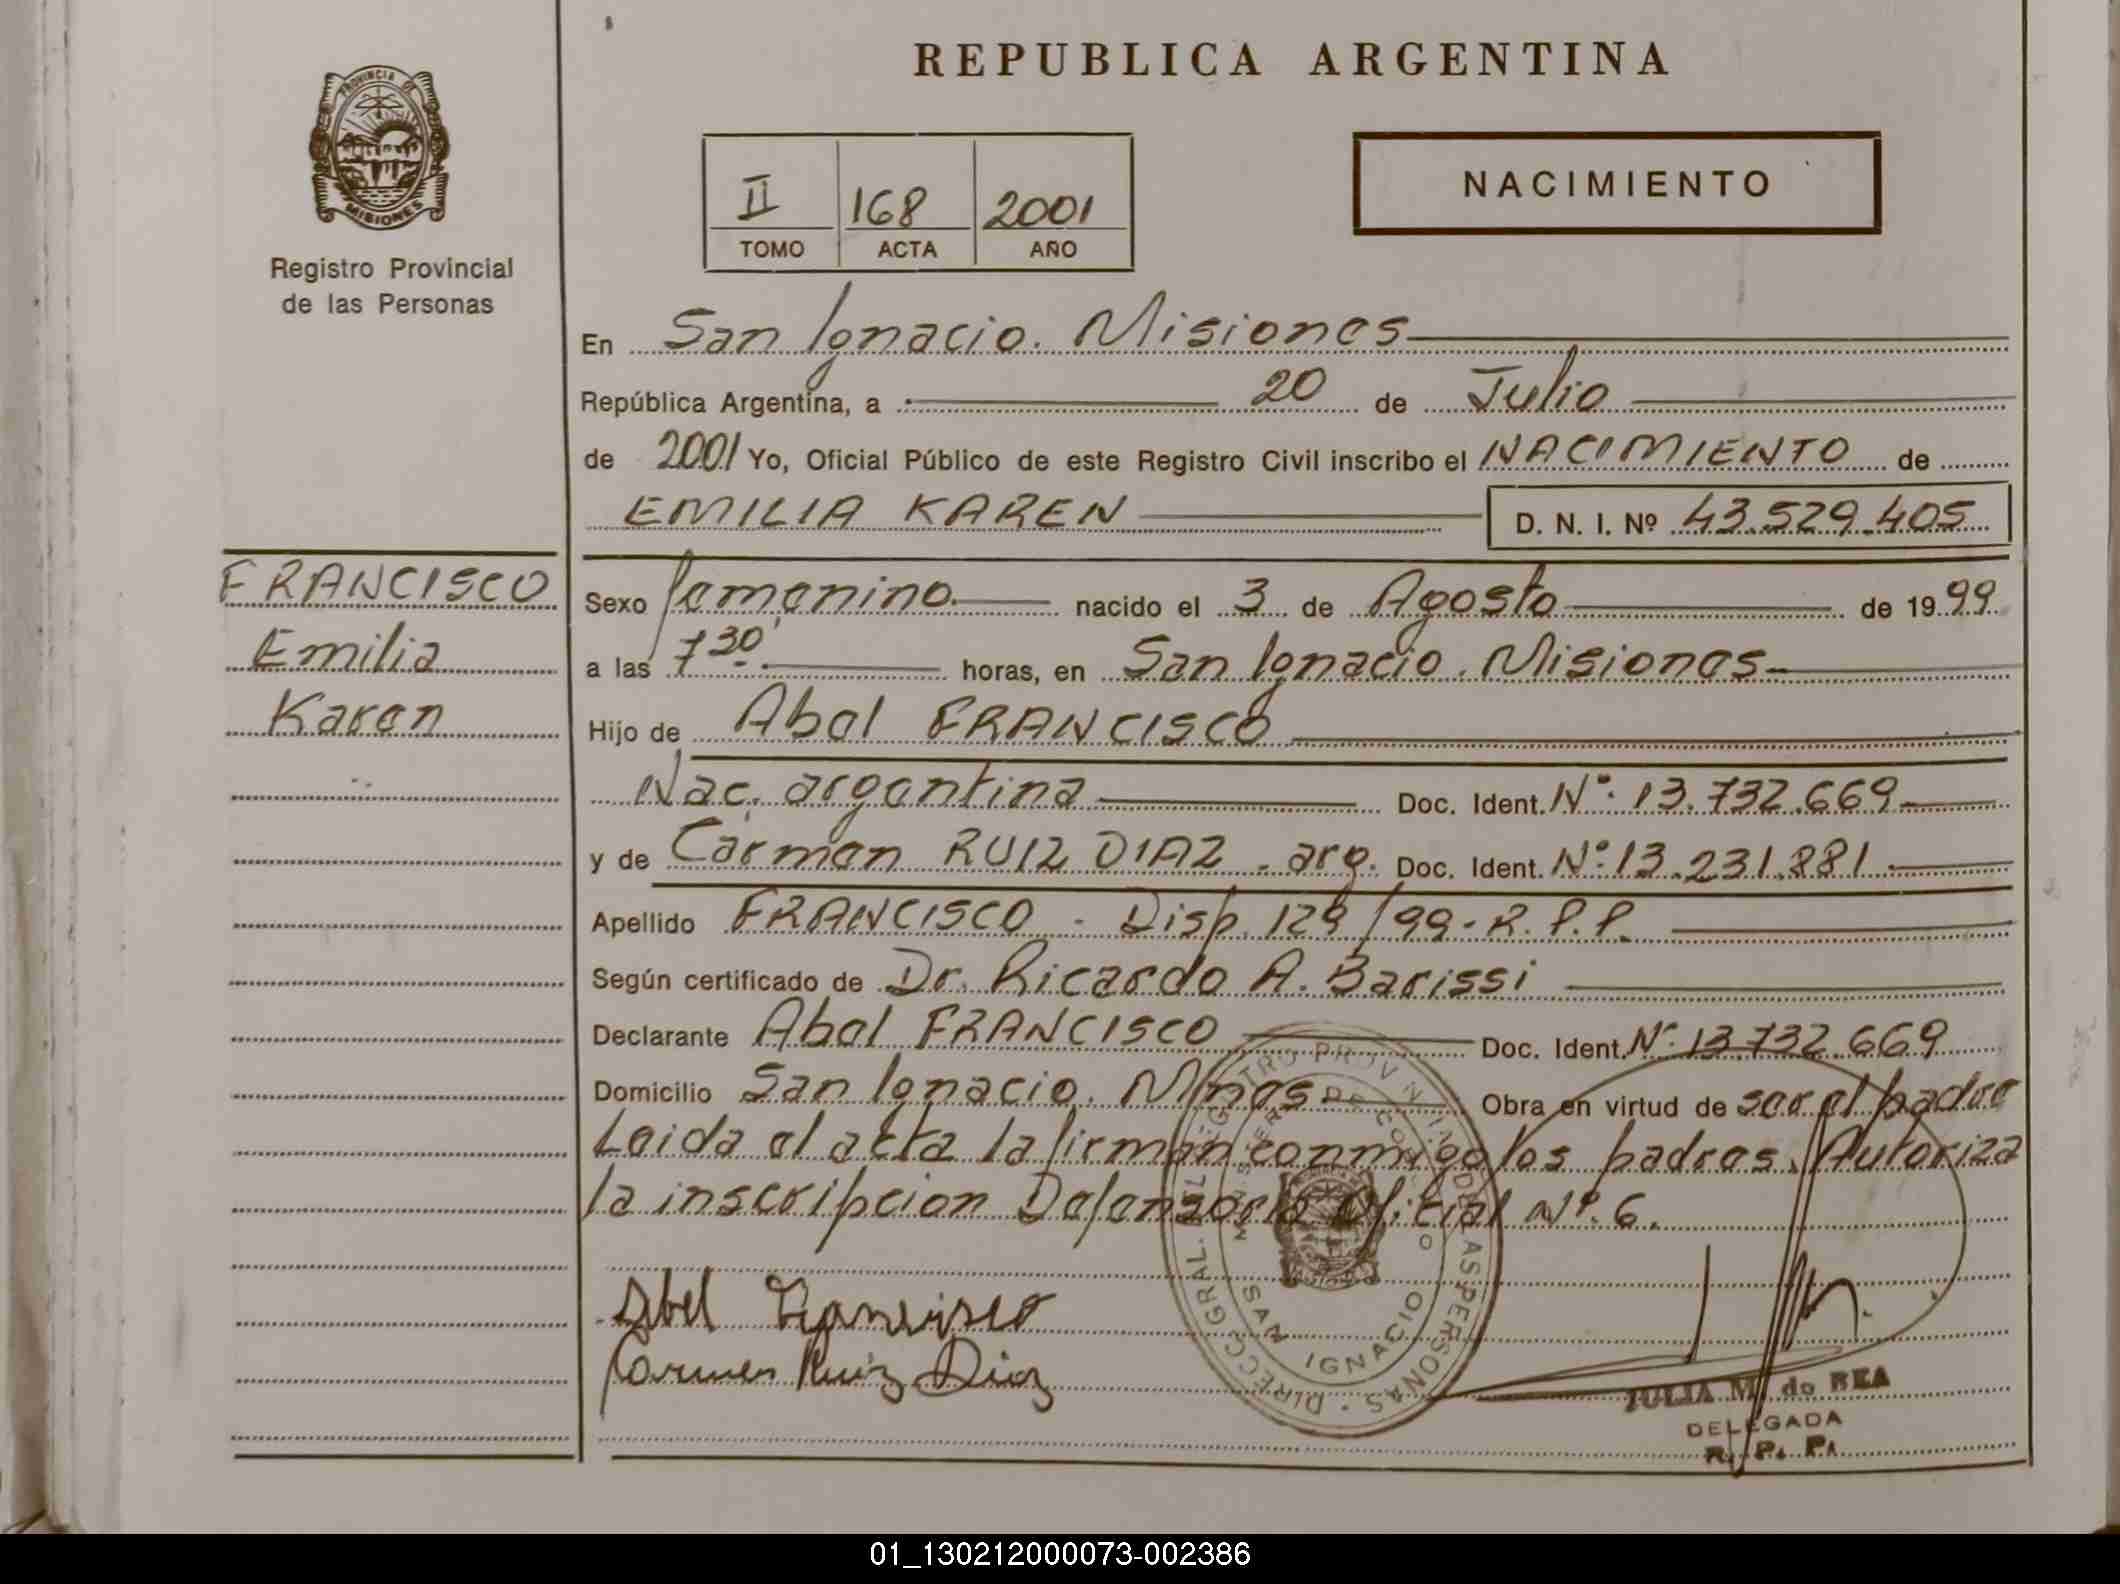 REPUBLICA ARGENTINA
PROVINCIA DE
MISIONES
Registro Provincial
de las Personas
II 168 2001
TOMO ACTA AÑO
NACIMIENTO
En San Ignacio. Misiones
República Argentina, a 20 de Julio
de 2001 Yo, Oficial Público de este Registro Civil inscribo el NACIMIENTO de
EMILIA KAREN D. N. I. Nº 43.529.405
FRANCISCO
Emilia
Karen
Sexo femenino nacido el 3 de Agosto de 1999
a las 7 30 horas, en San Ignacio. Misiones
Hijo de Abel FRANCISCO
Nac. argentina Doc. Ident. Nº: 13.732.669
y de Carmen RUIZ DIAZ. arg. Doc. Ident. Nº: 13.231.881
Apellido FRANCISCO - Disp. 129/99-R.P.P.
Según certificado de Dr. Ricardo A. Barissi
Declarante Abel FRANCISCO Doc. Ident. Nº: 13.732.669
Domicilio San Ignacio. Mnes Obra en virtud de ser el padre
Leida el acta la firman conmigo los padres. Autoriza
la inscripcion Defensoria Oficial Nº. 6.
Abel Francisco
Carmen Ruiz Diaz
SAN IGNACIO
JULIA M. de REA
DELEGADA
R. P. P.
01_130212000073-002386